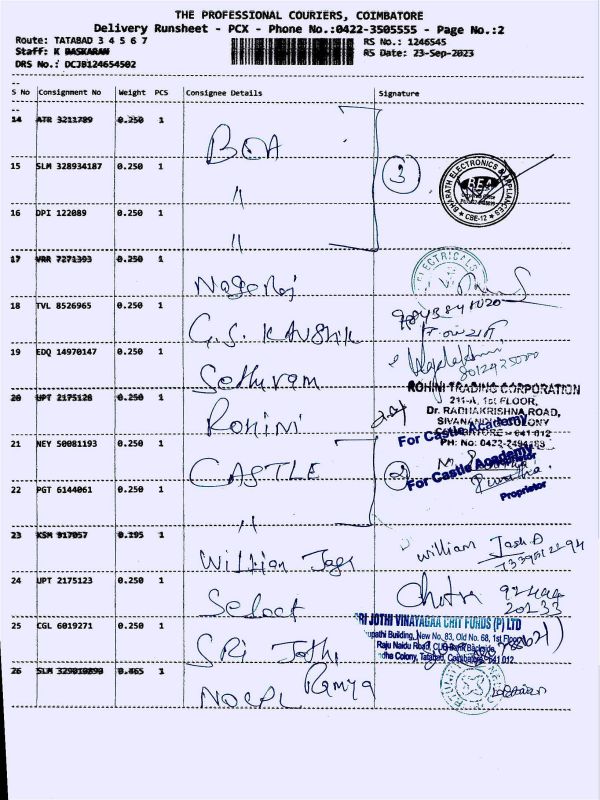 THE PROFESSIONAL COURIERS, COIMBATORE
Delivery Runsheet - PCX - Phone No.:0422-3505555 - Page No.:2
Route: TATABAD 3 4 5 6 7
RS No.: 1246545
Staff: K BASKARAN
RS Date: 23-Sep-2023
DRS No.: DCJB124654502
S No Consignment No Weight PCS Consignee Details Signature
14 ATR 3211789 0.250 1 BEA
15 SLM 328934187 0.250 1 "
3
BHARATH ELECTRONICS & APPLIANCES
BEA
* CBE-12 *
16 DPI 122089 0.250 1 "
17 VRR 7271393 0.250 1 Nagaraj
ELECTRICALS
18 TVL 8526965 0.250 1 G.S. KAUSHIK
19 EDQ 14970147 0.250 1 Sethuram
20 UPT 2175128 0.250 1 Rohini
ROHINI TRADING CORPORATION
211-A, 1st FLOOR,
Dr. RADHAKRISHNA ROAD,
SIVANANDA COLONY
COIMBATORE - 641 012
21 NEY 50081193 0.250 1 CASTLE
For Castle Academy
2
For Castle Academy
Proprietor
22 PGT 6144061 0.250 1 "
23 KSM 917057 0.195 1 William
William
24 UPT 2175123 0.250 1 Select
25 CGL 6019271 0.250 1 SRI Jothi
SRI JOTHI VINAYAGAA CHIT FUNDS (P) LTD
New No. 83, Old No. 68, 1st Floor
26 SLM 329010890 0.465 1 Ramya